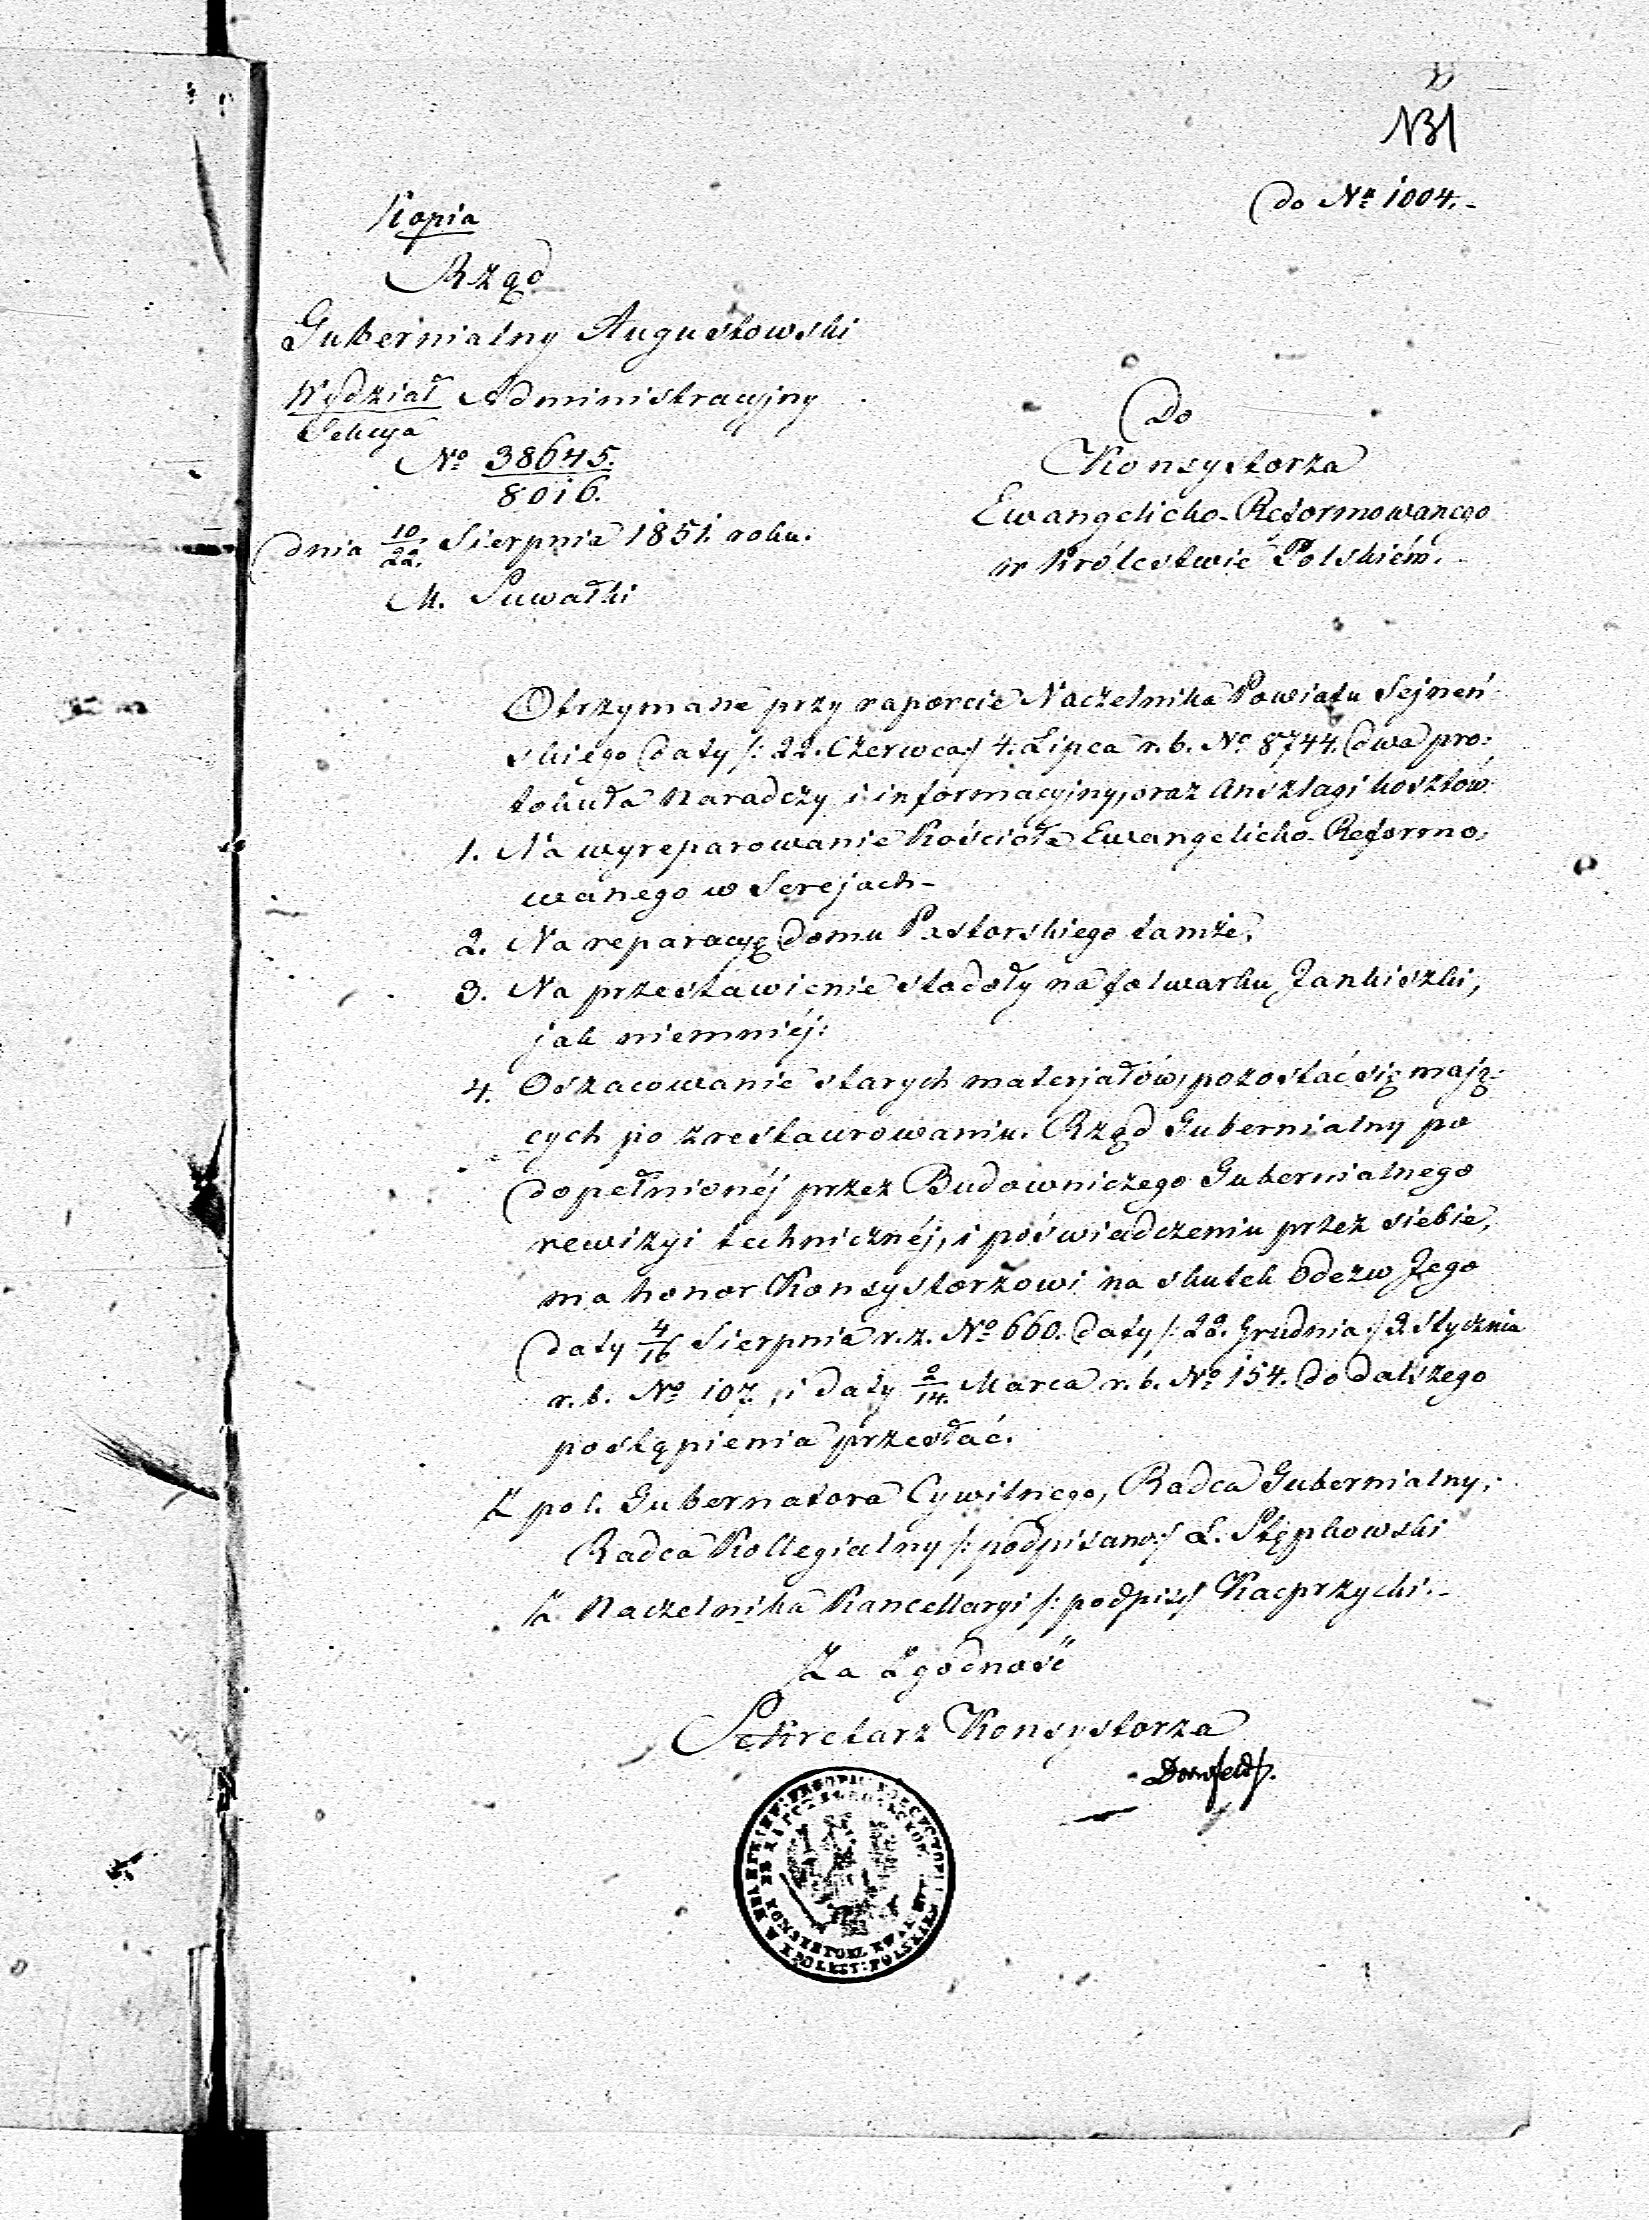 NB1
do Nr 1004.-
Kopia
Rząd
Gubernialny Augustowski
Wydział Administracyjny
Sekcya
No 38645.
8016.
dnia 10/22. Sierpnia 1851. roku.
M. Suwałki
Do
Konsystorza
Ewangelicko-Reformowanego
w Królestwie Polskiém.
Otrzymane przy raporcie Naczelnika Powiatu Sejneń
skiego daty /: 22. Czerwca :/ 4. Lipca r. b. No 8744. dwa pro:
tokuła naradczy i informacyjny, oraz Anszlagi kosztów
1. Na wyreparowanie Kościoła Ewangelicko-Reformo:
wanego w Serejach-
2. Na reparacyę domu Pastorskiego tamże,
3. Na przestawienie stodoły na folwarku Jankiszki,
jak niemniéj:
4. Oszacowanie starych materjałów, pozostać się mają:
cych po zrestaurowaniu. Rząd Gubernialny po
dopełnionéj przez Budowniczego Gubernialnego
rewizyi technicznéj, i poświadczeniu przez siebie,
ma honor Konsystorzowi na skutek Odezw Jego
daty 4/16 Sierpnia r. z. No 660. daty /: 22. Grudnia :/ 3. Stycznia
r. b. No 107, i daty 2/14. Marca r. b. No 154. do dalszego
postąpienia przesłać.
Z pol. Gubernatora Cywilnego, Radca Gubernialny,
Radca Kollegialny /: podpisano :/ L. Stępkowski
Z. Naczelnika Kancellaryi /: podpis :/ Kacprzycki.-
Za Zgodność
Sekretarz Konsystorza